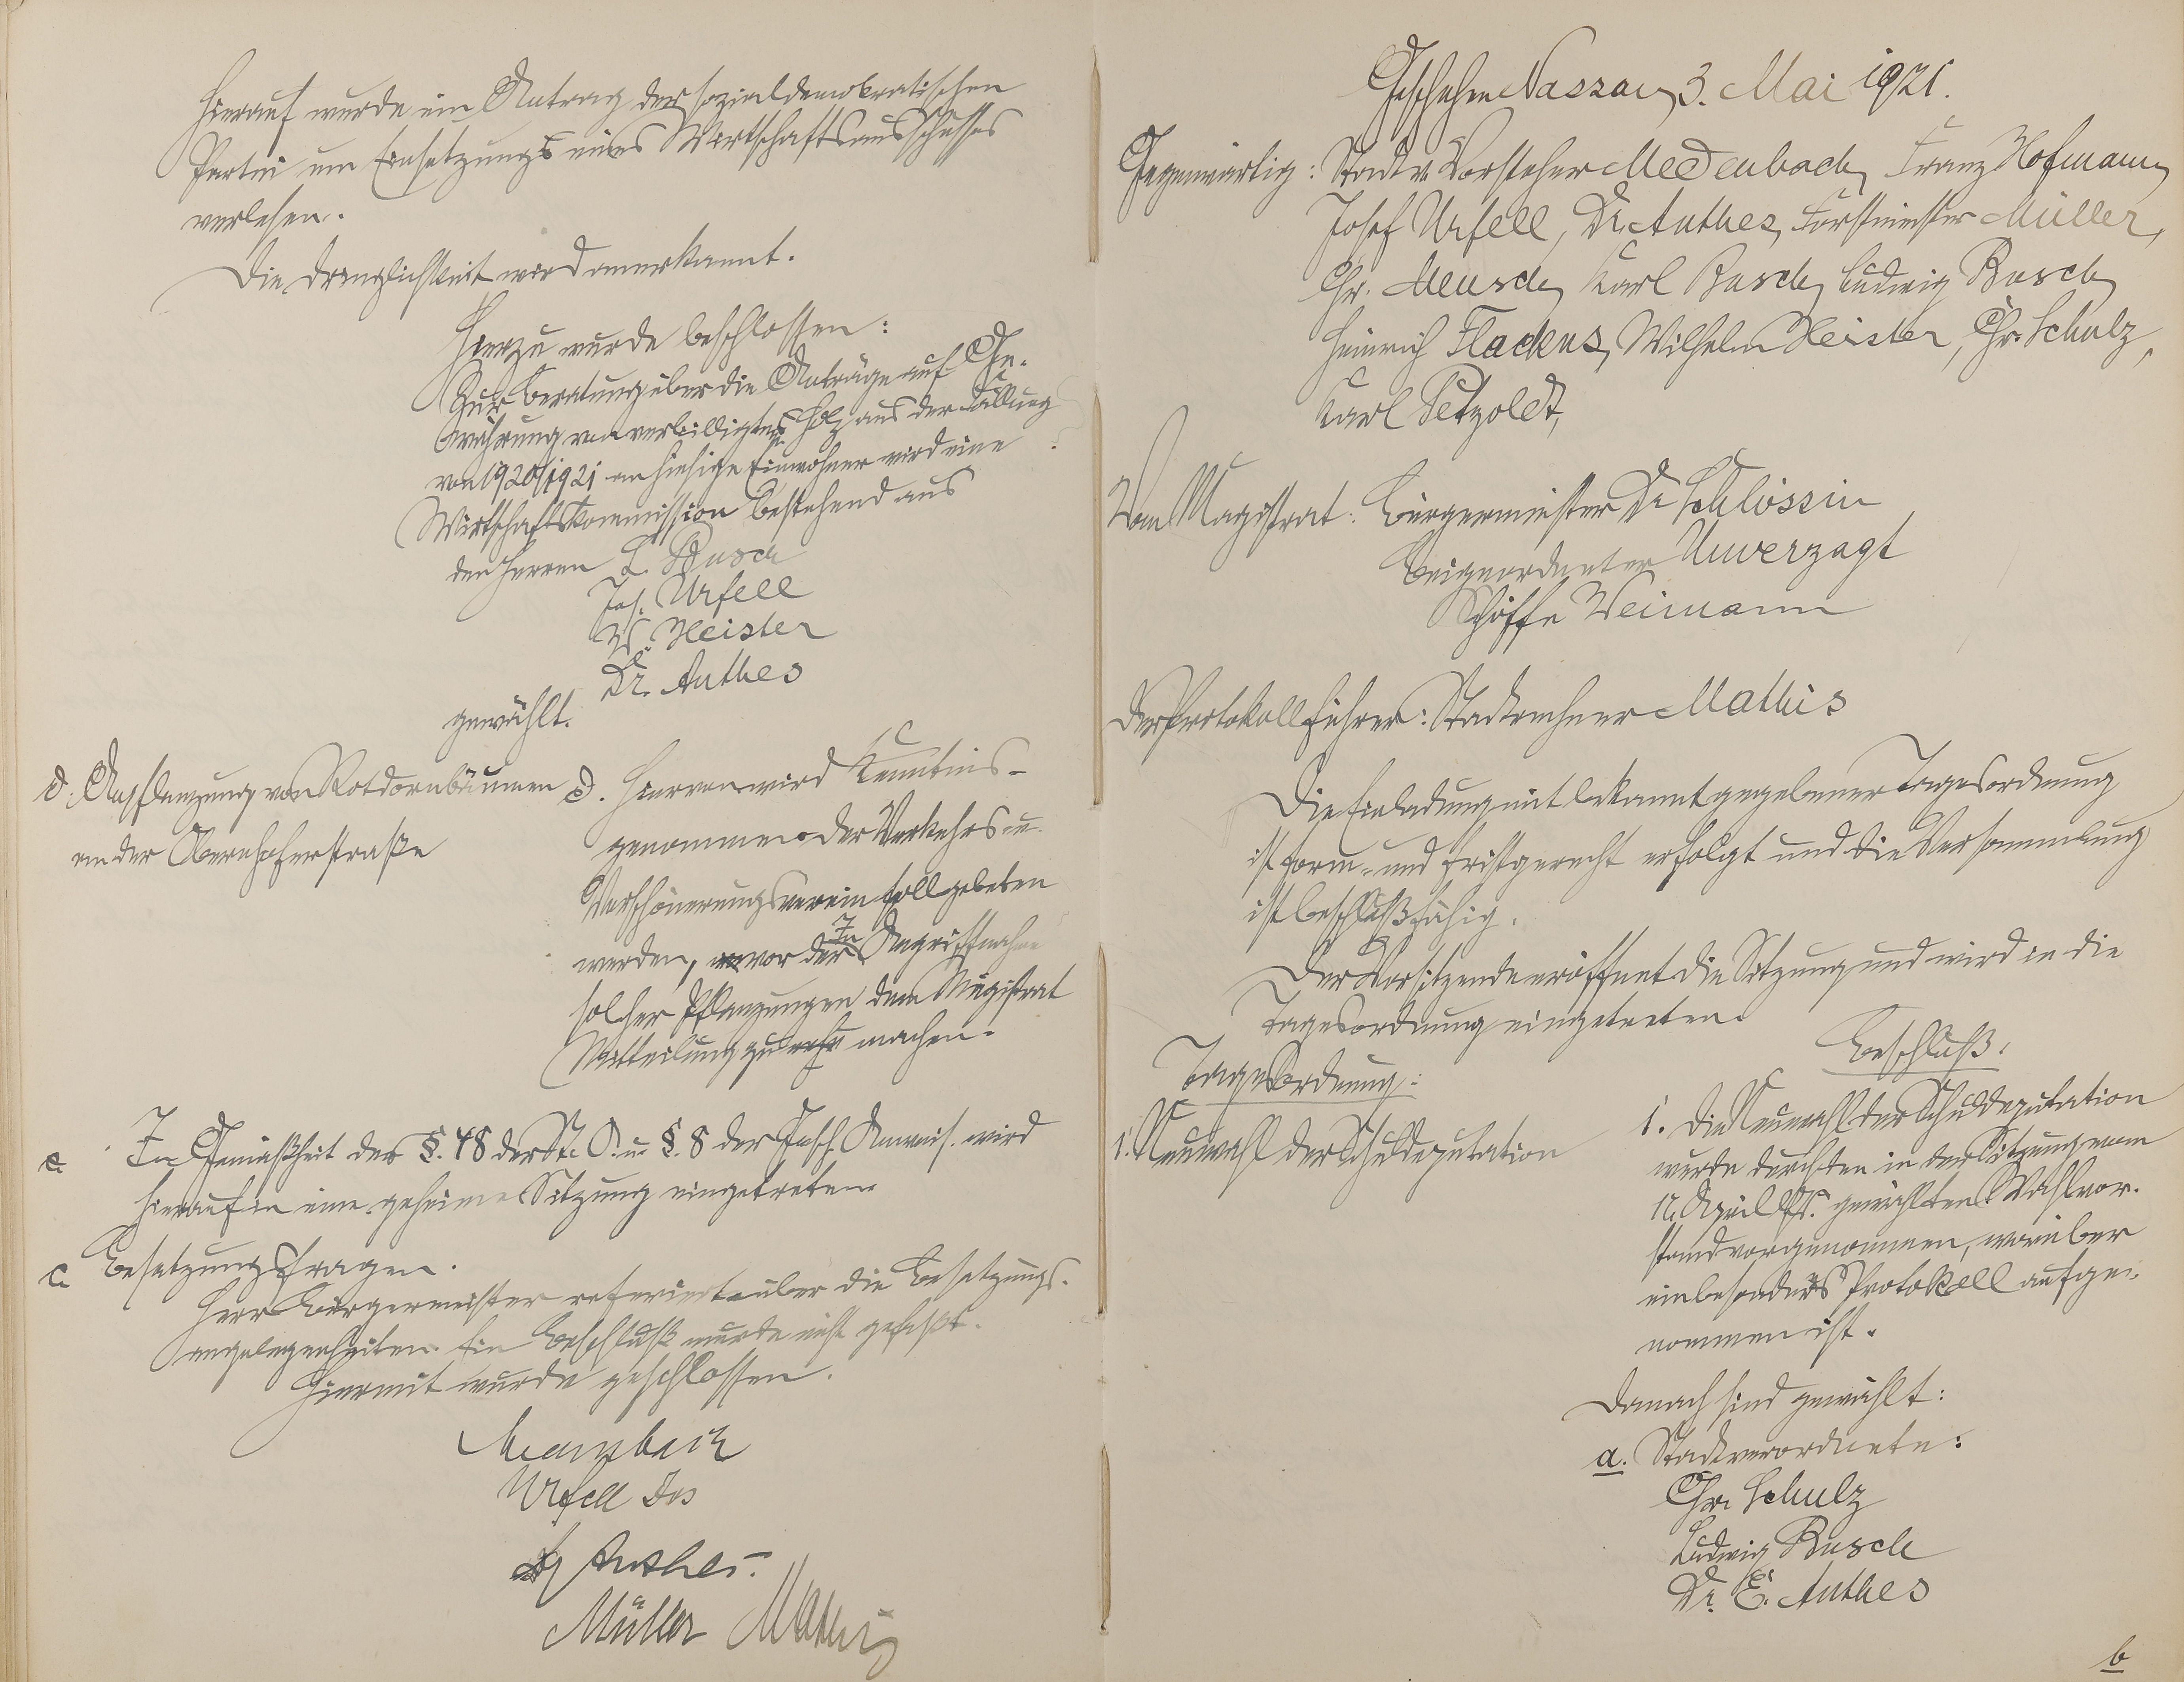 Hierauf wurde ein Antrag der sozialdemokratischen
Partei um Einsetzung eines Wirtschaftsausschusses
verlesen.
Die Dringlichkeit wird anerkannt.
Hierzu wurde beschlossen:
Zur Beratung über die Anträge auf Ge-
währung von verbilligtem Holz aus der Fällung
von 1920/1921 an hiesige Einwohner wird eine
Wirtschaftskommission bestehend aus
den Herren L. Busch
Jos. Urfell
W. Heister
Dr. Anthes
gewählt.
d. Anpflanzung von Rotdornbäumen
an der Obernhoferstraße
d. Hiervon wird Kenntnis-
genommen der Verkehrs- u.
Verschönerungsverein soll gebeten
werden, vor der In Angriffnahme
solcher Pflanzungen dem Magistrat
Mitteilung zu machen.
e. In Gemäßheit des §. 48 der St. O. u. §. 8 der Gesch. Anweis. wird
hierauf in eine geheime Sitzung eingetreten.
c. Besetzungsfragen.
Herr Bürgermeister referierte über die Besetzungs-
angelegenheiten. Ein Beschluß wurde nicht gefaßt.
Hiermit wurde geschlossen.
Urfell Jos
Dr Anthes.
Müller Mathis
Geschehen Nassau, 3. Mai 1921.
Gegenwärtig: Stadtv. Vorsteher Medenbach, Franz Hofmann,
Josef Urfell, Dr. Anthes, Forstmeister Müller,
Chr. Meusch, Karl Busch, Ludwig Busch,
Heinrich Flackus, Wilhelm Heister, Chr. Schulz,
Karl Petzoldt,
Vom Magistrat: Bürgermeister Dr Schlössin
Beigeordneter Unverzagt
Schöffe Weimann
Der Protokollführer: Stadtrechner Mathis
Die Einladung mit bekannt gegebener Tagesordnung
ist form- und fristgerecht erfolgt und die Versammlung
ist beschlußfähig.
Der Vorsitzende eröffnet die Sitzung und wird in die
Tagesordnung eingetreten.
Tagesordnung:
Beschluß:
1. Neuwahl der Schuldeputation
1. Die Neuwahl der Schuldeputation
wurde durch den in der Sitzung vom
12. April ds. Js. gewählten Wahlvor-
stand vorgenommen, worüber
ein besonders Protokoll aufge-
nommen ist.
Danach sind gewählt:
a. Stadtverordnete:
Chr. Schulz
Ludwig Busch
Dr. E. Anthes
b